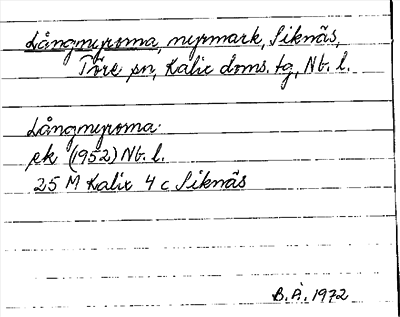 Långmyroma, myrmark, Siknäs,
Töre sn, Kalix doms. tg, Nb. l.
Långmyroma
ek (1952) Nb. l.
25 M Kalix 4 c Siknäs
B. Å. 1972